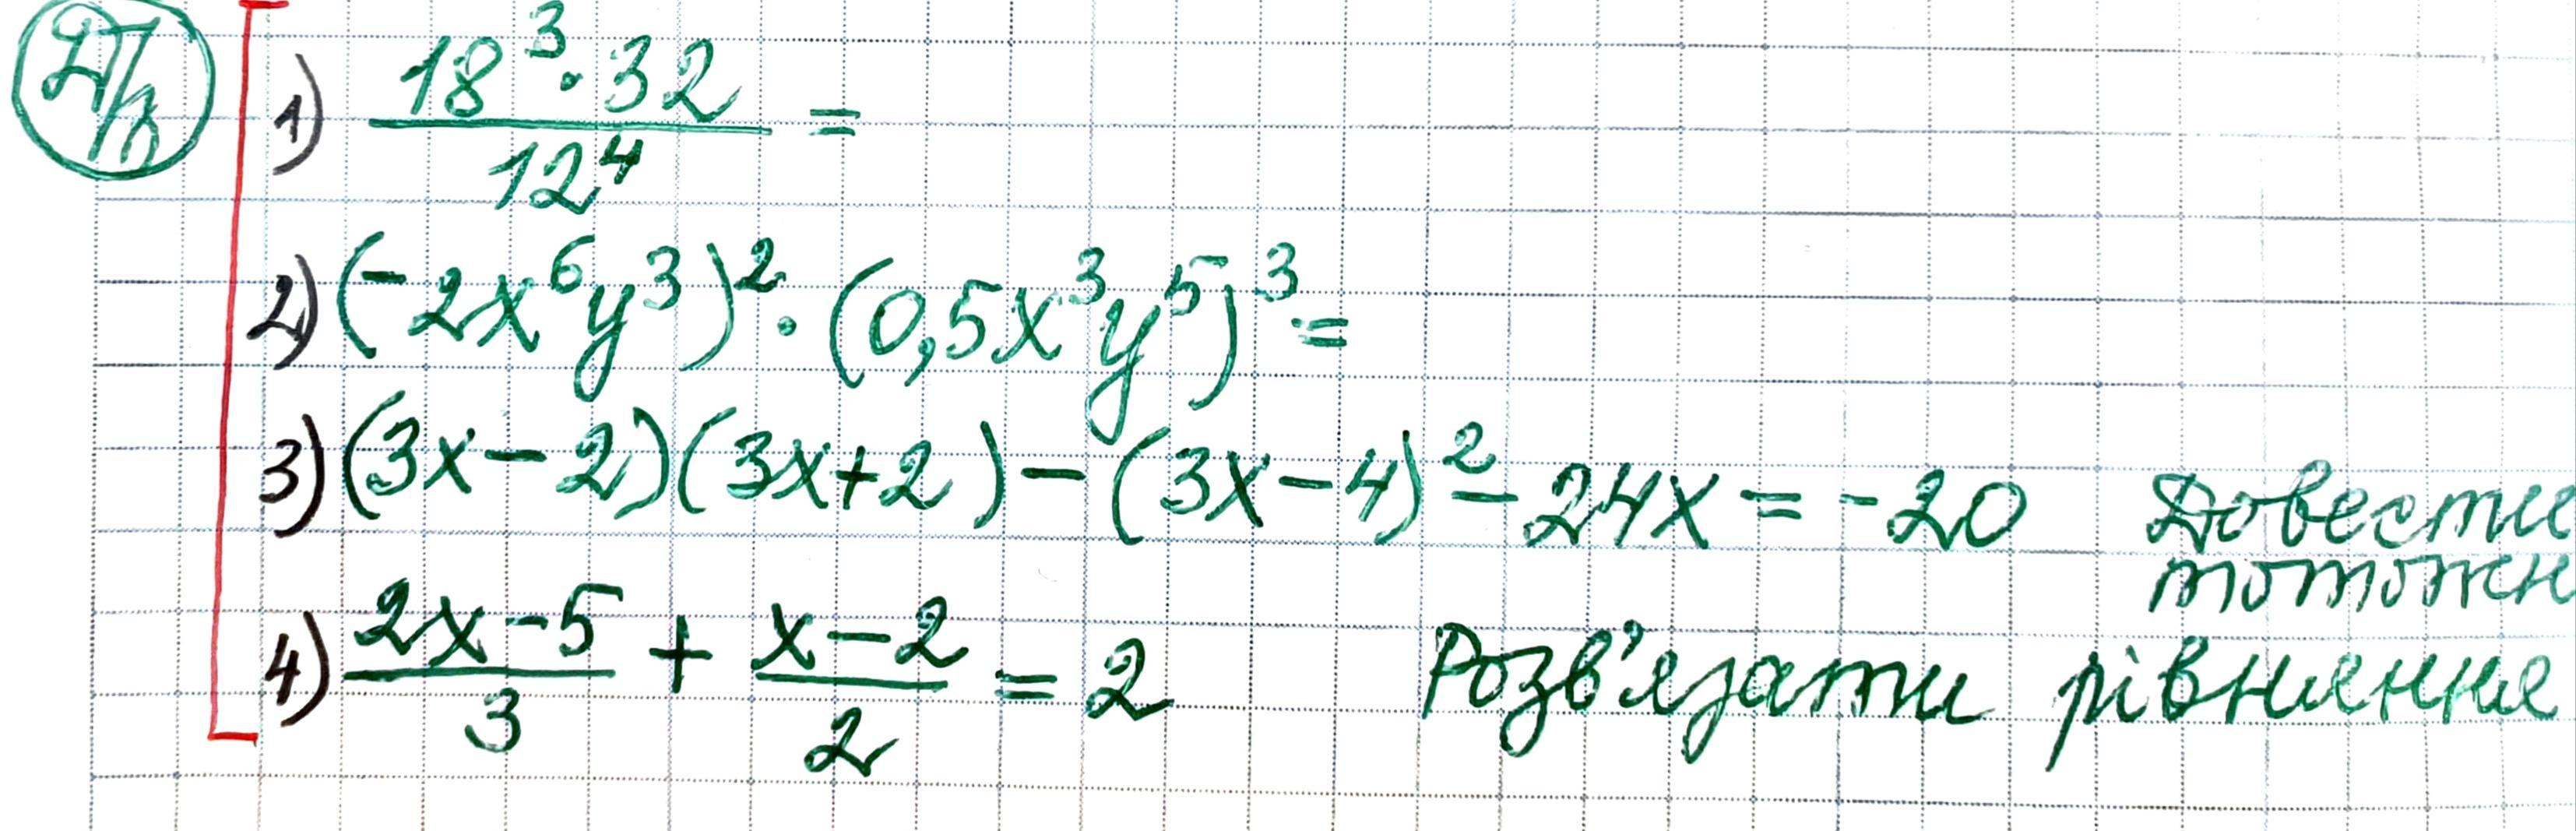 Д/з
1) 18³·32 / 12⁴ =
2) (-2x⁶y³)²·(0,5x³y⁵)³=
3) (3x-2)(3x+2)-(3x-4)²-24x=-20 Довести
тотожн
4) 2x-5 / 3 + x-2 / 2 = 2 Розв'язати рівняння